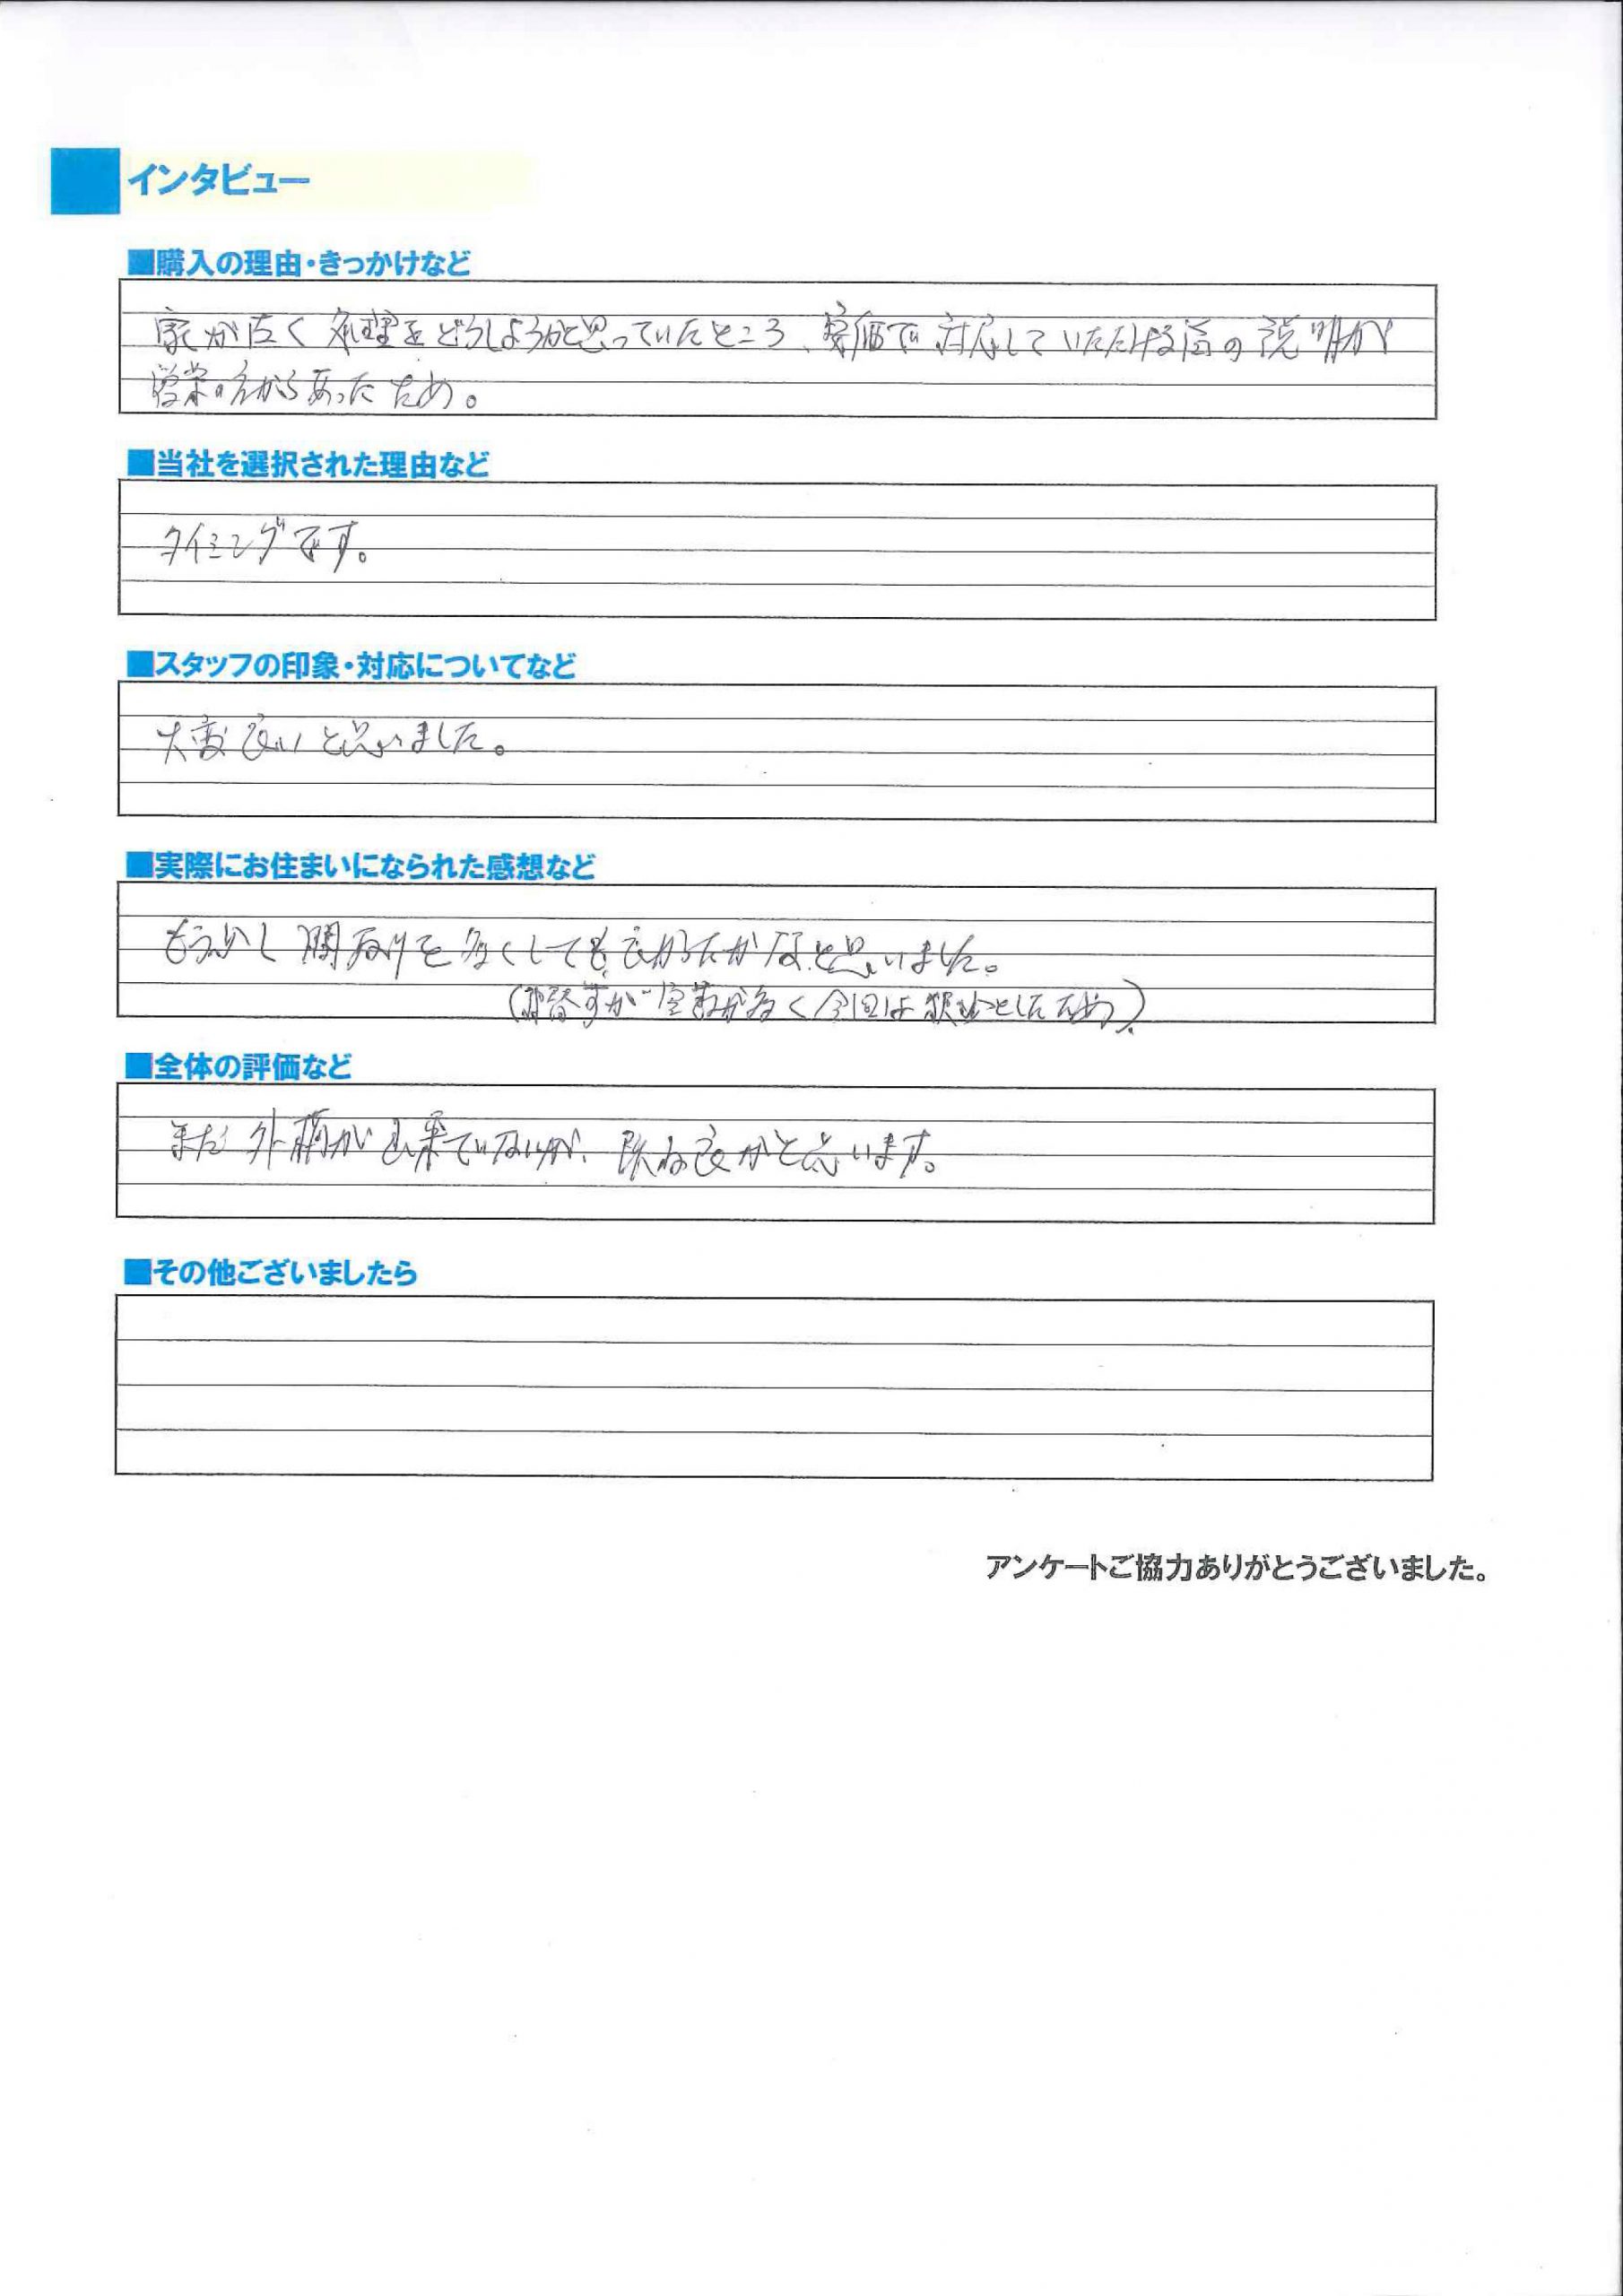 インタビュー
■購入の理由・きっかけなど
家が古く処理をどうしようかと思っていたところ、安価で対応していただける旨の説明が
営業の方からあったため。
■当社を選択された理由など
タイミングです。
■スタッフの印象・対応についてなど
大変良いと思いました。
■実際にお住まいになられた感想など
もう少し間取りを多くしても良かったかなと思いました。
(が 室数が多く今回は としたため)
■全体の評価など
まだ外構が出来ていないが、概ね良かと思います。
■その他ございましたら
アンケートご協力ありがとうございました。